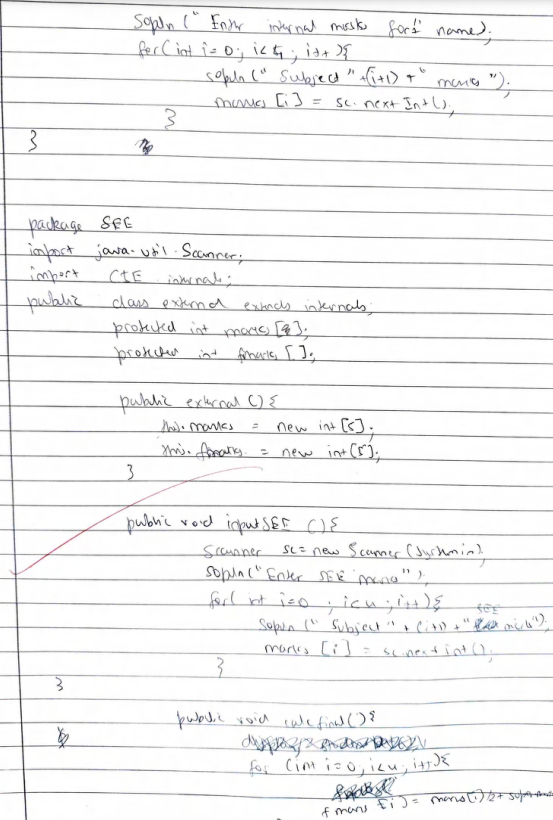 Sopln (" Enter internal marks for 1" name);
for(int i=0; i<5; i++){
sopln (" Subject "+(i+1)+" marks ");
marks [i] = sc.next Int();
}
}
package SEE
import java.util.Scanner;
import CIE internals;
public class external extends internals;
protected int marks [];
protected int fmarks [ ];
public external () {
this.marks = new int [5];
this.fmarks = new int [5];
}
public void inputSEE () {
Scanner sc= new Scanner (System.in)
sopln("Enter SEE marks");
for( int i=0 ; i<u ; i++){
Sopln (" Subject " + (i+1) + " SEE marks");
marks [i] = sc.next int();
}
}
public void calcfinal() {
for (int i=0, i<u, i++){
fmarks [i] = marks[i]/2 +